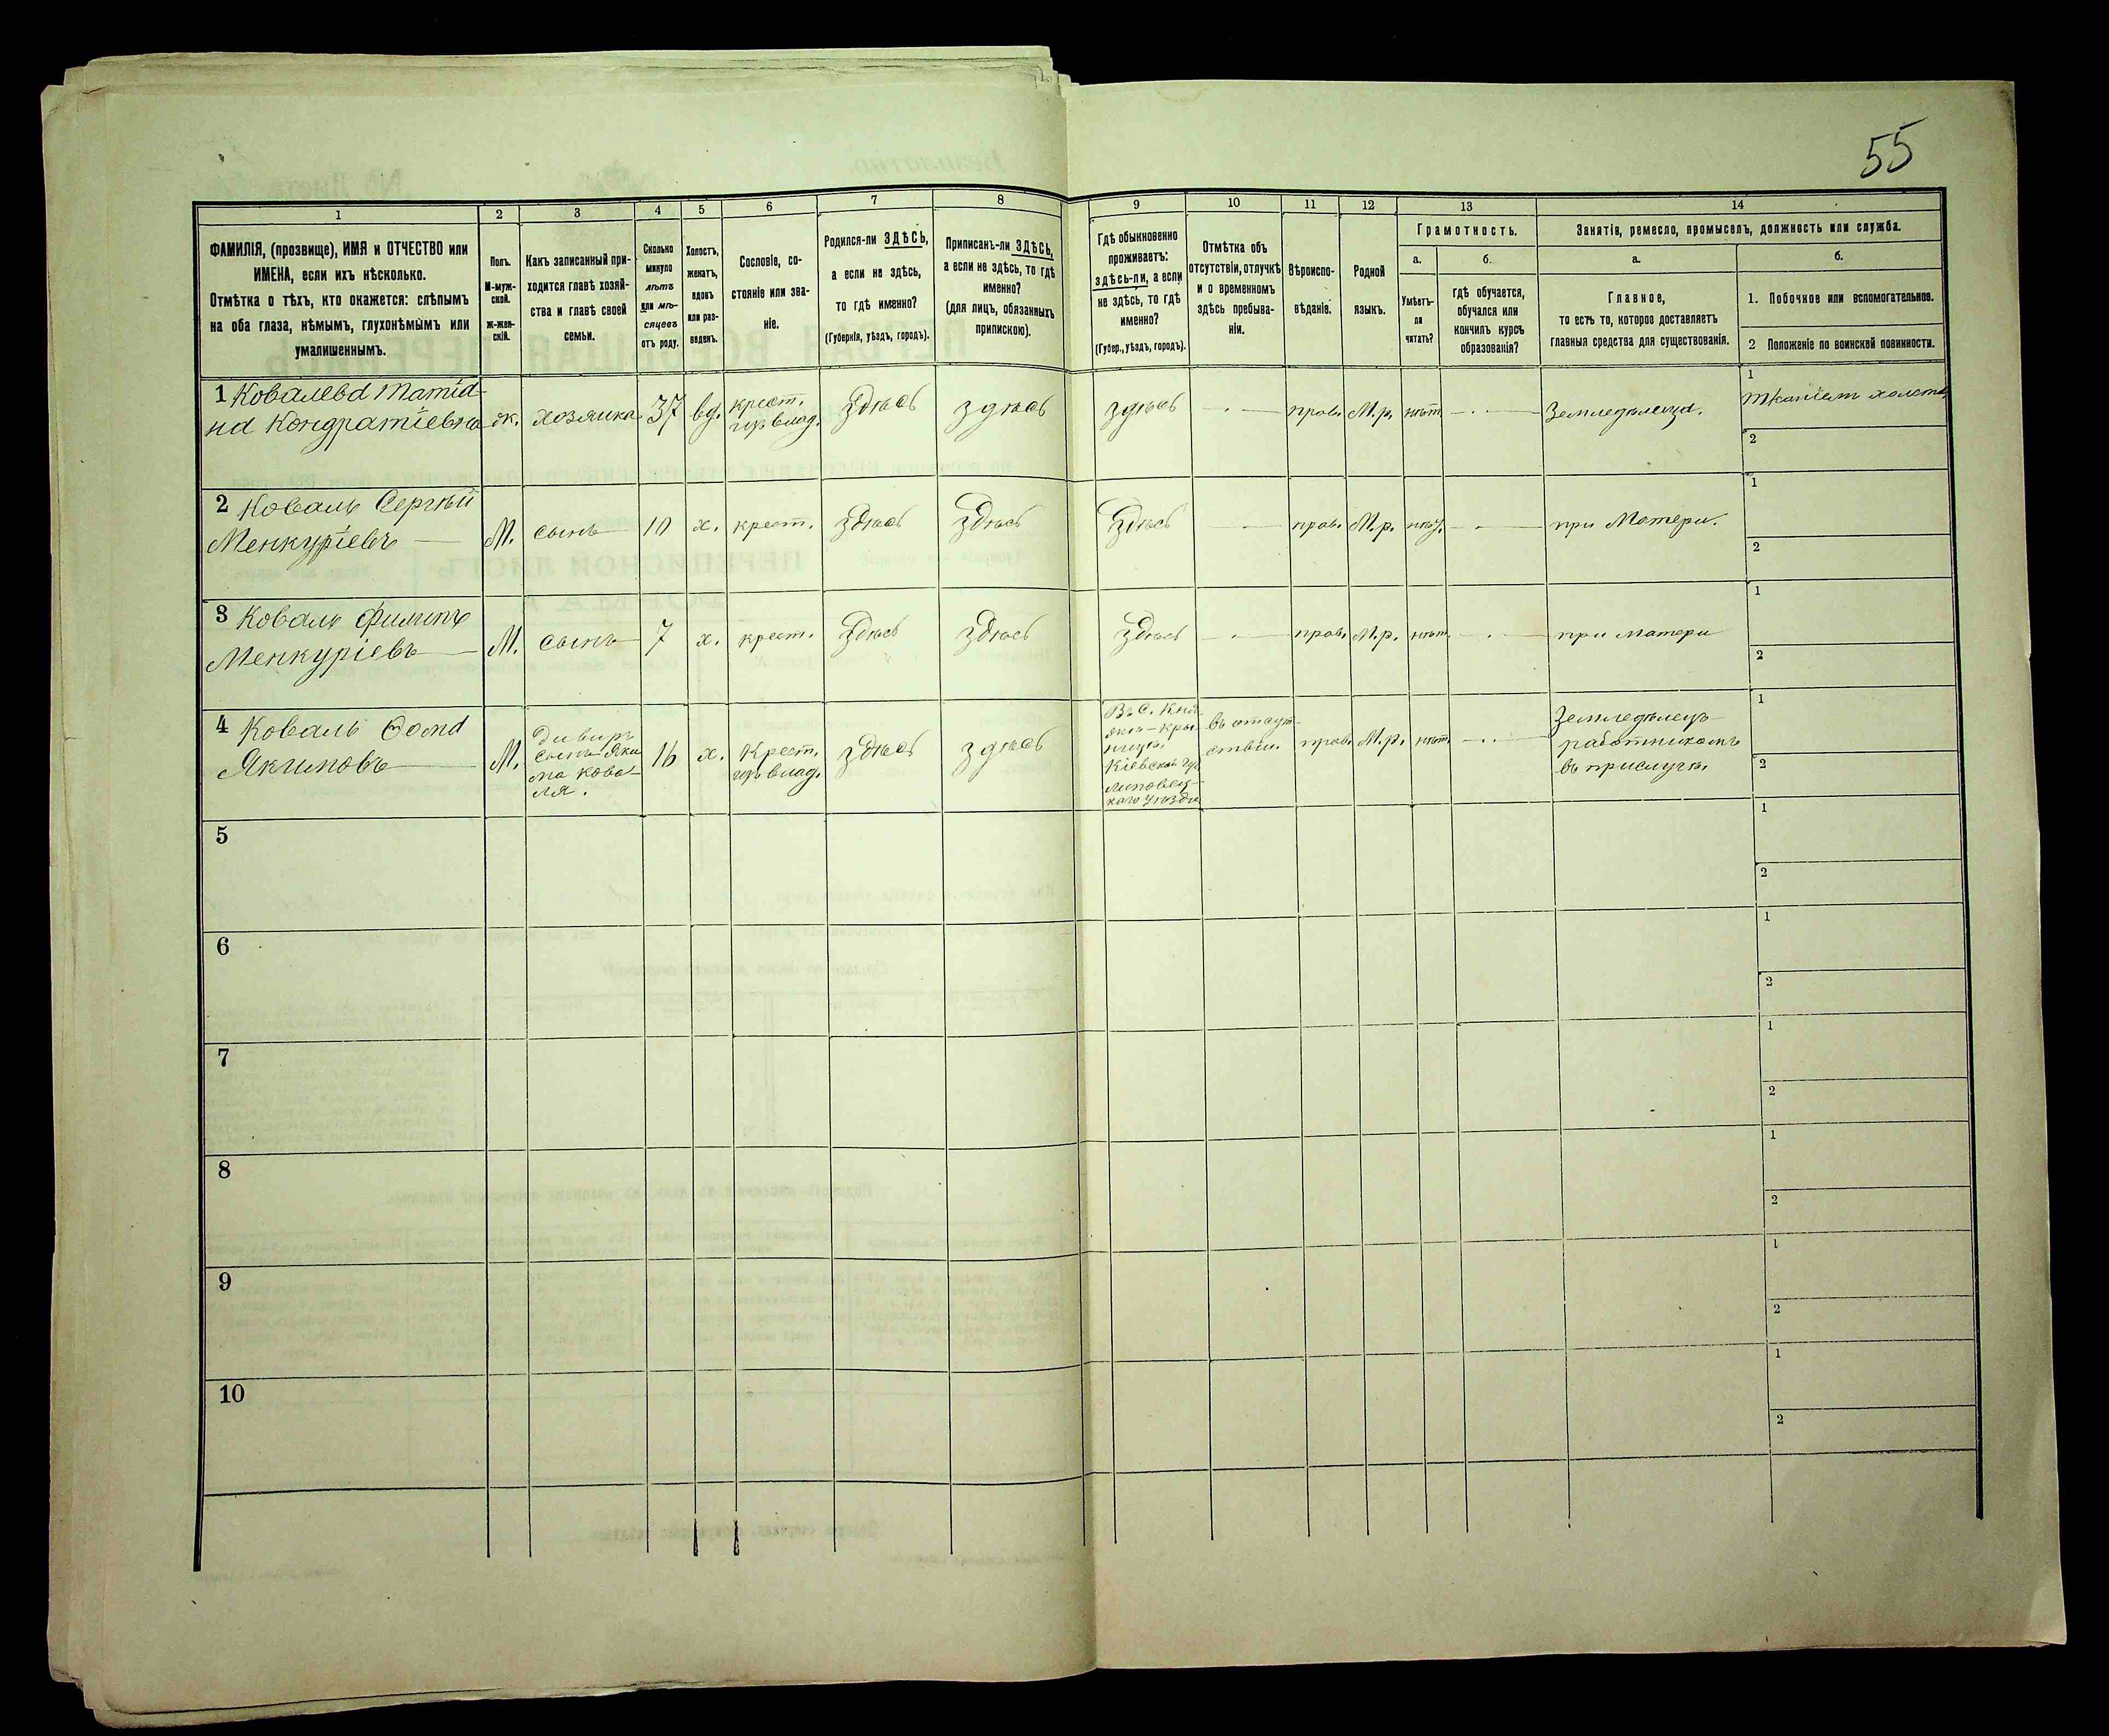 55
1
2
3
4
5
6
7
8
9
10
11
12
13
14
ФАМИЛІЯ, (прозвище), ИМЯ и ОТЧЕСТВО или
ИМЕНА, если ихъ нѣсколько.
Отмѣтка о тѣхъ, кто окажется: слѣпымъ
на оба глаза, нѣмымъ, глухонѣмымъ или
умалишеннымъ.
Полъ.
М-муж-
ской.
Ж-жен-
скій.
Какъ записанный при-
ходится главѣ хозяй-
ства и главѣ своей
семьи.
Сколько
минуло
лѣтъ
или мѣ-
сяцевъ
отъ роду.
Холостъ,
женатъ,
вдовъ
или раз-
веденъ.
Сословіе, со-
стояніе или зва-
ніе.
Родился-ли ЗДѢСЬ,
а если не здѣсь,
то гдѣ именно?
(Губернія, уѣздъ, городъ).
Приписанъ-ли ЗДѢСЬ,
а если не здѣсь, то гдѣ
именно?
(для лицъ, обязанныхъ
припискою).
Гдѣ обыкновенно
проживаетъ:
здѣсь-ли, а если
не здѣсь, то гдѣ
именно?
(Губер., уѣздъ, городъ).
Отмѣтка объ
отсутствіи, отлучкѣ
и о временномъ
здѣсь пребыва-
ніи.
Вѣроиспо-
вѣданіе.
Родной
языкъ.
Грамотность.
а.
Умѣетъ-
ли
читать?
б.
гдѣ обучается,
обучался или
кончилъ курсъ
образованія?
Занятія, ремесло, промыселъ, должность или служба.
а.
Главное,
то есть то, которое доставляетъ
главныя средства для существованія.
б.
1. Побочное или вспомогательное.
2 Положеніе по воинской повинности.
1 Ковалева Татiа-
на Кондратіевна
ж.
хозяйка
37
вд.
крест.
здѣсь
здѣсь
здѣсь
прав.
М.р.
нѣт
Земледѣлица.
1
Тканіем холста
2
2 Коваль Сергѣй
Менкуріевъ
М.
сынъ
10
х.
крест.
здѣсь
здѣсь
здѣсь
прав.
М.р.
при Матери.
1
2
3 Коваль Филипъ
Менкуріевъ
М.
сынъ
7
х.
крест.
здѣсь
здѣсь
здѣсь
прав.
М.р.
нѣт
при матери
1
2
4 Коваль Ѳома
Якимовъ
М.
сынъ Яки
ма Кова-
ля.
16
х.
Крест.
здѣсь
здѣсь
Въ с.
Кіевской гу.
Липовец-
каго уѣзда
въ отсут-
ствіи.
прав.
М.р.
нѣт
Земледѣлецъ
работникомъ
въ прислугѣ.
1
2
5
1
2
6
1
2
7
1
2
8
1
2
9
1
2
10
1
2